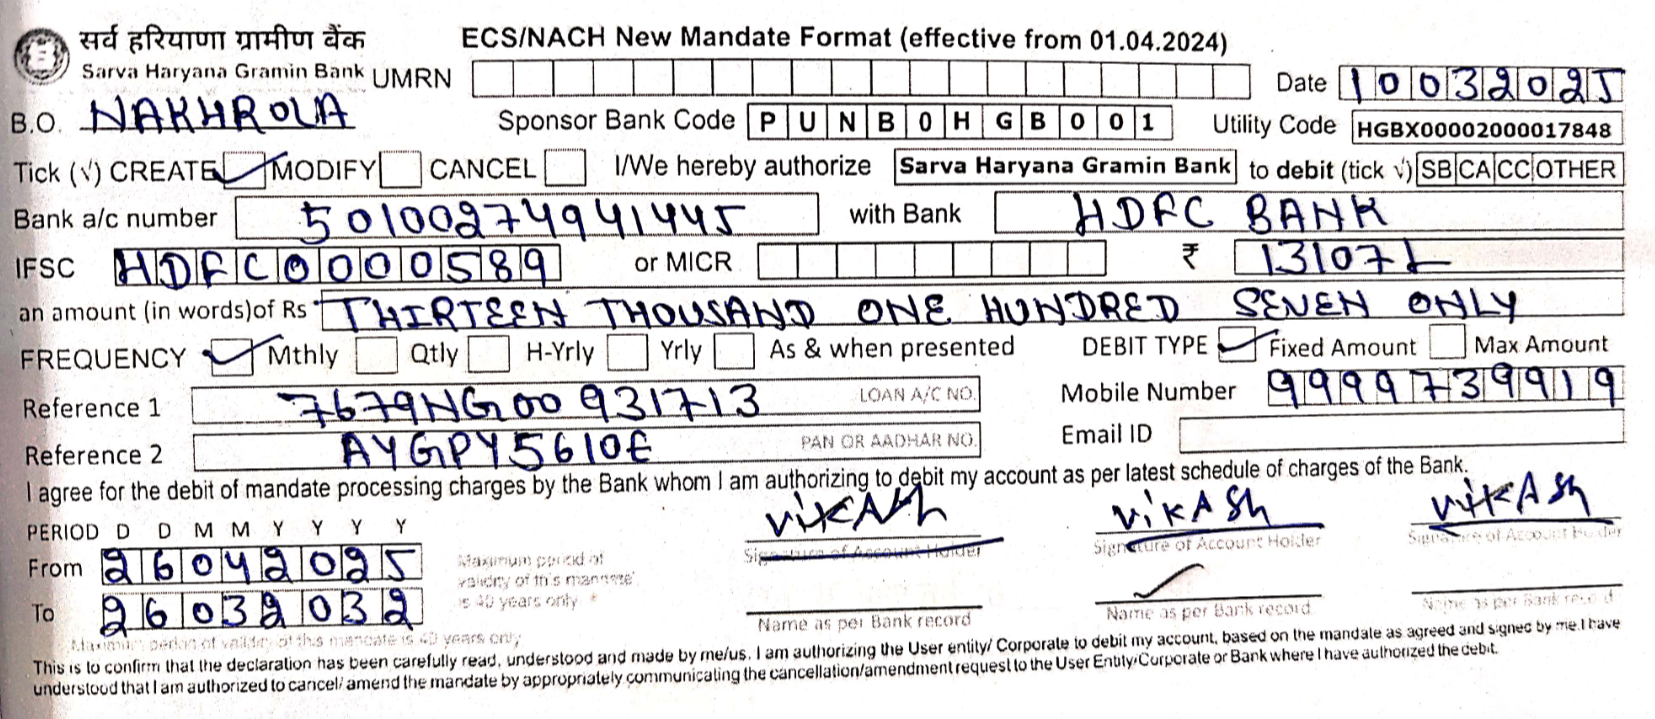 सर्व हरियाणा ग्रामीण बैंक ECS/NACH New Mandate Format (effective from 01.04.2024)
Sarva Haryana Gramin Bank UMRN Date 10032025
B.O. NAKHROLA Sponsor Bank Code PUNB0HGB001 Utility Code HGBX00002000017848
Tick (√) CREATE ✓ MODIFY CANCEL I/We hereby authorize Sarva Haryana Gramin Bank to debit (tick √) SB CA CC OTHER
Bank a/c number 50100274941445 with Bank HDFC BANK
IFSC HDFC0000589 or MICR ₹ 13107/-
an amount (in words)of Rs THIRTEEN THOUSAND ONE HUNDRED SEVEN ONLY
FREQUENCY ✓ Mthly Qtly H-Yrly Yrly As & when presented DEBIT TYPE ✓ Fixed Amount Max Amount
Reference 1 7679NG00931713 LOAN A/C NO. Mobile Number 9999739919
Reference 2 AYGPY5610E PAN OR AADHAR NO. Email ID
I agree for the debit of mandate processing charges by the Bank whom I am authorizing to debit my account as per latest schedule of charges of the Bank.
VIKASh VIKASh VIKASh
PERIOD D D M M Y Y Y Y
Signature of Account Holder Signature of Account Holder Signature of Account Holder
From 26042025 Maximum period of
validity of this mandate
is 40 years only
To 26032032
Name as per Bank record Name as per Bank record Name as per Bank record
Maximum period of validity of this mandate is 40 years only
This is to confirm that the declaration has been carefully read, understood and made by me/us. I am authorizing the User entity/ Corporate to debit my account, based on the mandate as agreed and signed by me.I have
understood that I am authorized to cancel/ amend the mandate by appropriately communicating the cancellation/amendment request to the User Entity/Corporate or Bank where I have authorized the debit.